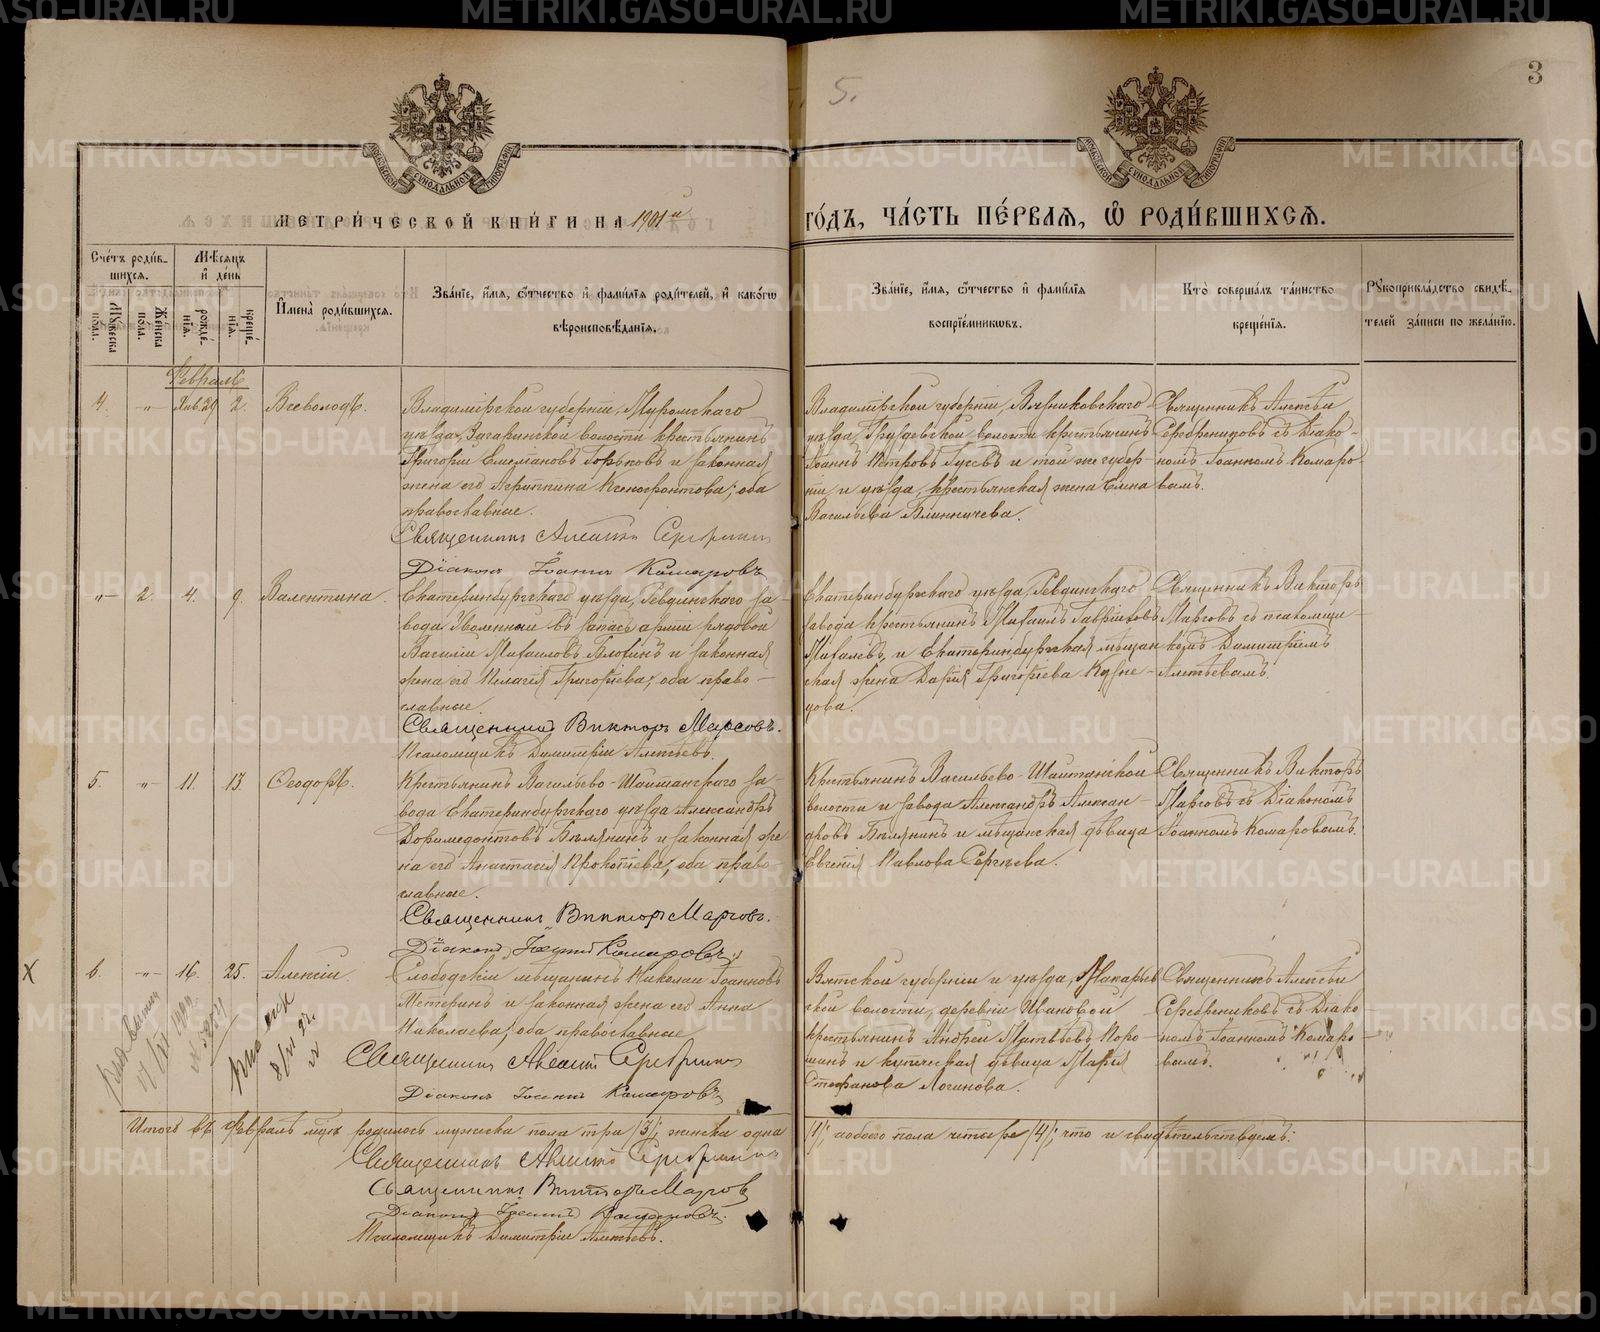 METRIKI.GASO-URAL.RU
5.
3
МЕТРИ́ЧЕСКОЙ КНИ́ГИ НА 1901 й
ГО́ДЪ, ЧА́СТЬ ПЕ́РВАЯ, Ѡ РОДИ́ВШИХСЯ.
Сче́тъ роди́в-
шихся.
Мѣ́сяцъ
и́ де́нь
Му́жеска пола.
Же́нска пола.
рожде́-
нїя.
креще́-
нїя.
И҆мена̀ роди́вшихся.
Зва́нїе, и҆́мя, ѻ҆́тчество и҆ фами́лїя роди́телей, и҆ како́гѡ
вѣроисповѣ́данїя.
Зва́нїе, и҆́мя, ѻ҆́тчество и҆ фами́лїя
воспрїе́мникѡвъ.
Кто̀ соверша́лъ та́инство
креще́нїя.
Рꙋкоприкла́дство свидѣ́-
телей за́писи по жела́нїю.
Февраль
4. " Янв. 29 2. Всеволодъ.
Владимірской губерніи, Муромскаго
уѣзда, Загаринской волости крестьянинъ
Григорій Емельяновъ Горьковъ и законная
жена его Агриппина Ксенофонтова; оба
православные.
Священникъ Алексій Серебрен
Діаконъ Іоаннъ Комаровъ
Владимірской губерніи, Вязниковскаго
уѣзда, Груздевской волости крестьянинъ
Іоаннъ Петровъ Гусевъ и той же губер-
ніи и уѣзда, крестьянская жена Елена
Васильева Блинничева.
Священникъ Алексѣй
Серебренниковъ съ Діако-
номъ Іоанномъ Комаро-
вымъ.
" 2. 4. 9. Валентина.
Екатеринбургскаго уѣзда, Ревдинскаго за-
вода Уволенный въ запасъ арміи рядовой
Василій Михаиловъ Блохинъ и законная
жена его Пелагія Григорьева; оба право-
славные.
Священникъ Викторъ Марсовъ.
Псаломщикъ Димитрій Алексѣевъ.
Екатеринбургскаго уѣзда, Ревдинскаго
завода крестьянинъ Михаилъ Гавріиловъ
и Екатеринбургская мѣщан-
ская жена Дарія Григорьева Кузне-
цова.
Священникъ Викторъ
Марсовъ съ псаломщи-
комъ Димитріемъ
Алексѣевымъ.
5. " 11. 13. Ѳеодоръ.
Крестьянинъ Васильево-Шайтанскаго за-
вода Екатеринбургскаго уѣзда Александръ
Доримедонтовъ Бѣлянинъ и законная же-
на его Анастасія Прокопіева; оба право-
славные.
Священникъ Викторъ Марсовъ.
Діаконъ Іоаннъ Комаровъ.
Крестьянинъ Васильево-Шайтанской
волости и завода Александръ Алексан-
дровъ Бѣлянинъ и мѣщанская дѣвица
Евгенія Павлова Сергѣева.
Священникъ Викторъ
Марсовъ съ Діакономъ
Іоанномъ Комаровымъ.
Х 6. " 16. 25. Алексій
Слободскій мѣщанинъ Николай Іоанновъ
Метеринъ и законная жена его Анна
Николаева; оба православные
Священникъ Алексій Серебрен
Діаконъ Іоаннъ Комаровъ
Вятской губерніи и уѣзда, Макарьев-
ской волости, деревни Ивановой
крестьянинъ Андрей Матвѣевъ Поро-
шинъ и купеческая дѣвица Марія
Стефанова Логинова.
Священникъ Алексѣй
Серебренниковъ съ Діако-
номъ Іоанномъ Комаро-
вымъ.
Итого въ Февралѣ мцѣ родилось мужеска пола три /3/; женска одна
/1/; обоего пола четыре /4/; что и свидѣтельствуемъ:
Священникъ Алексій Серебрен
Священникъ Викторъ Марсовъ
Діаконъ Іоаннъ Комаровъ.
Псаломщикъ Димитрій Алексѣевъ.